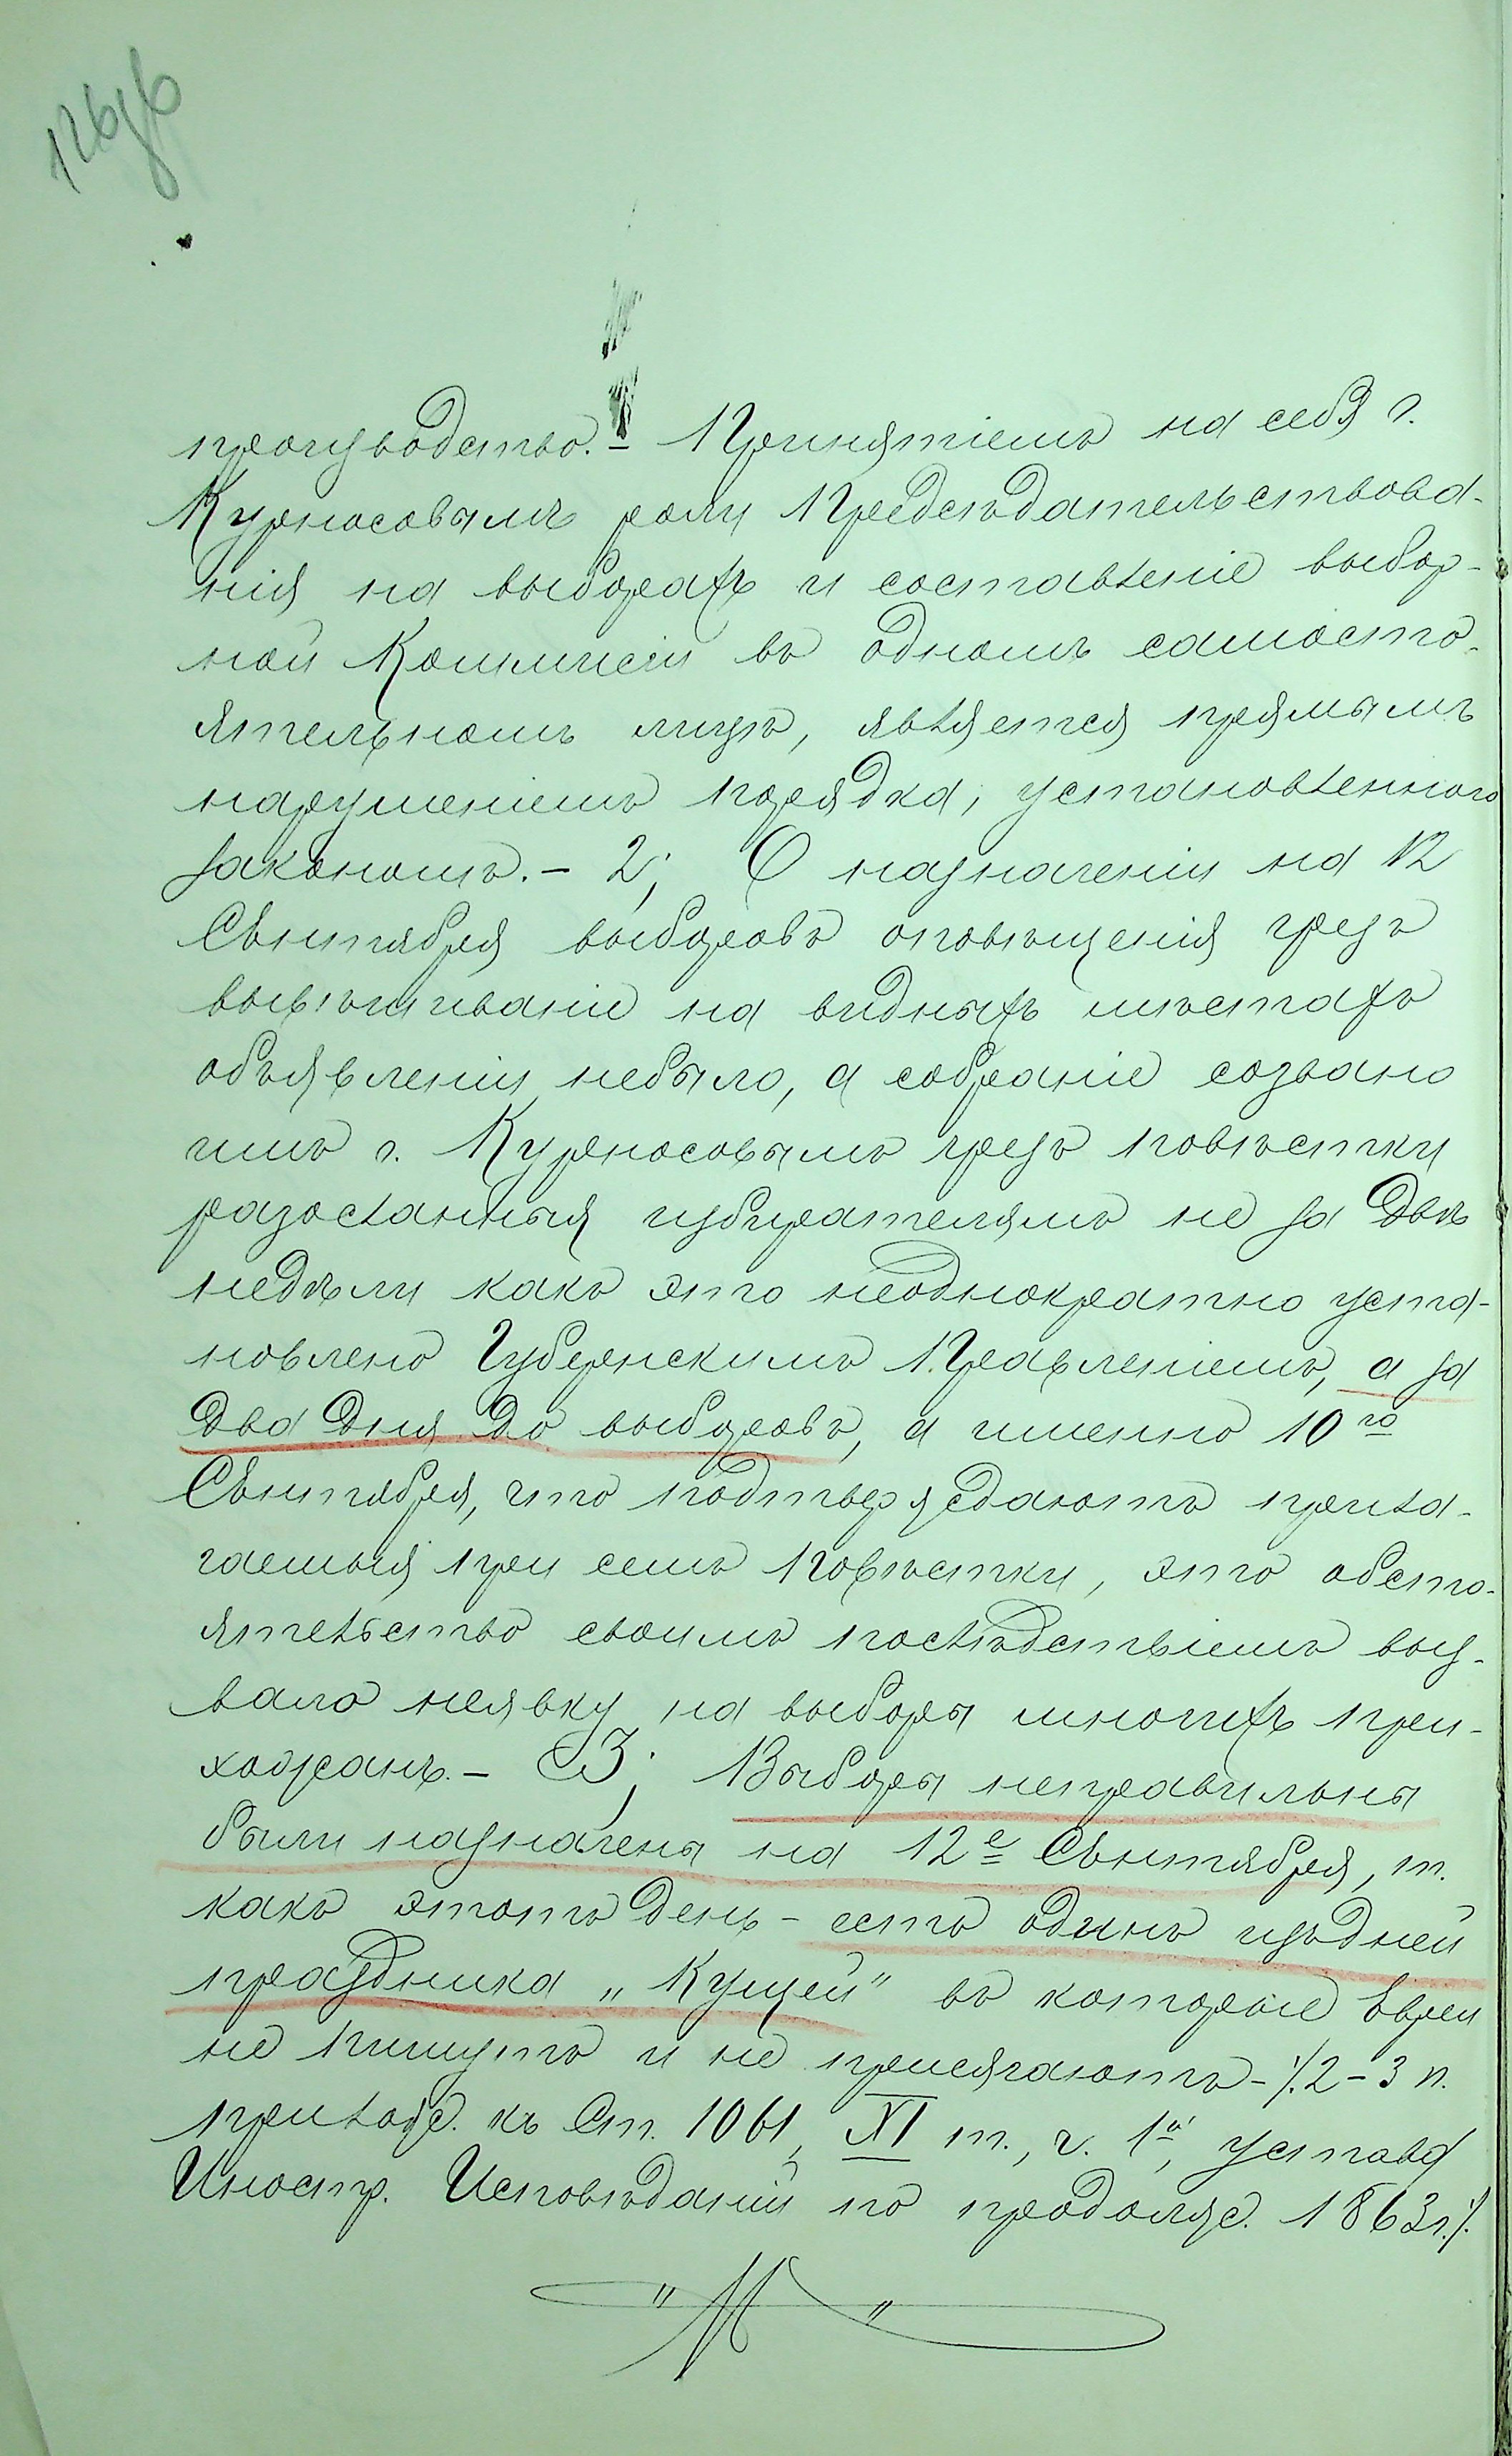 126об
производство. – Принятіемъ на себя г.
Курносовымъ роли Предсѣдательствова-
нія на выборахъ и составленіе выбор-
ной Коммисіи въ одномъ самосто-
ятельномъ лицѣ, является прямымъ
нарушеніемъ порядка, установленнаго
закономъ. – 2; О назначеніи на 12
Сентября выборовъ оповѣщенія чрезъ
вывѣшиваніе на видныхъ мѣстахъ
объявленій небыло, а собраніе созвано
имъ г. Курносовымъ чрезъ повѣстки
разосланныя избирателямъ не за двѣ
недѣли какъ это неоднократно уста-
новлено Губернскимъ Правленіемъ, а за
два дня до выборовъ, а именно 10го
Сентября, что подтверждаютъ прила-
гаемыя при семъ повѣстки, это обсто-
ятельство своимъ послѣдствіемъ выз-
вало неявку на выборы многихъ при-
хожанъ. – 3; Выборы неправильны
были назначены на 12е Сентября, т.
какъ этотъ день – есть одинъ изъ дней
праздника „Кущей" въ которые Евреи
не пишутъ и не присягаютъ –/. 2–3 п.
прилож. къ Ст. 1061, XI т., ч. 1й, устава
Иностр. Исповѣданій по продолж. 1863г./.